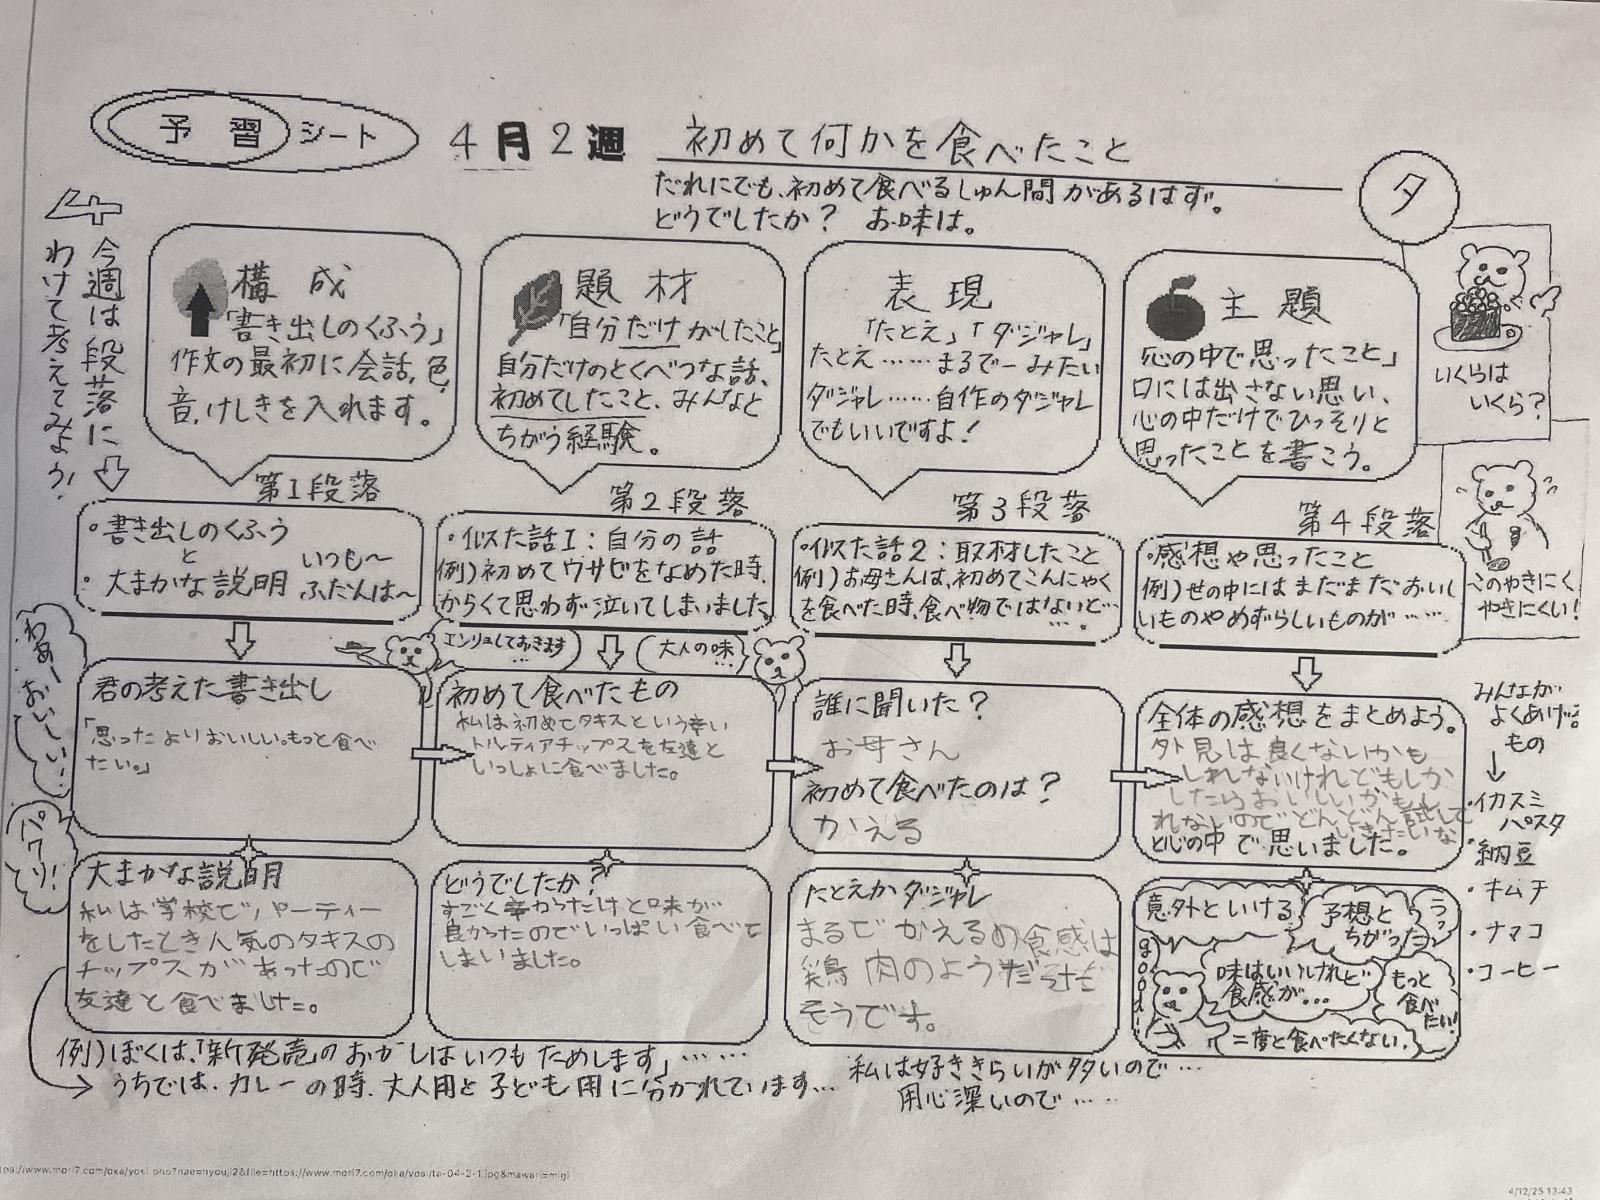 予習シート
4月2週
初めて何かを食べたこと
だれにでも、初めて食べるしゅん間があるはず。
どうでしたか？ お味は。
タ
今週は段落に
わけて考えてみよう！
構成
「書き出しのくふう」
作文の最初に会話、色、
音、けしきを入れます。
題材
「自分だけがしたこと」
自分だけのとくべつな話、
初めてしたこと、みんなと
ちがう経験。
表現
「たとえ」「ダジャレ」
たとえ……まるで〜みたい
ダジャレ……自作のダジャレ
でもいいですよ！
主題
心の中で思ったこと」
口には出さない思い、
心の中だけでひっそりと
思ったことを書こう。
いくらは
いくら？
このやきにく
やきにくい！
第1段落
・書き出しのくふう
と
・大まかな説明
いつも〜
ふだんは〜
第2段落
・似た話1：自分の話
例）初めてワサビをなめた時、
からくて思わず泣いてしまいました
第3段落
・似た話2：取材したこと
例）お母さんは、初めてこんにゃく
を食べた時、食べ物ではないと…
…。
第4段落
・感想や思ったこと
例）世の中にはまだまだおいし
いものやめずらしいものが……
わあーおいしい！
パクリ！
エンリョしておきます
…
大人の味
…
君の考えた書き出し
「思ったよりおいしい。もっと食べ
たい。」
初めて食べたもの
私は初めてタキスという辛い
トルティアチップスを友達と
いっしょに食べました。
誰に聞いた？
お母さん
初めて食べたのは？
かえる
全体の感想をまとめよう。
外見は良くないかも
しれないけれどもしか
したらおいしいかもし
れないのでどんどん試して
いきたいな
と心の中で思いました。
大まかな説明
私は学校でパーティー
をしたとき人気のタキスの
チップスがあったので
友達と食べました。
どうでしたか？
すごく辛かったけと味が
良かったのでいっぱい食べて
しまいました。
たとえかダジャレ
まるでかえるの食感は
鶏肉のようだったそ
そうです。
意外といける
予想と
ちがった
うっ
good!
味はいいけれど
食感が…
もっと
食べ
たい！
二度と食べたくない。
みんなが
よくあげる
もの
・イカスミ
パスタ
・納豆
・キムチ
・ナマコ
・コーヒー
例）ぼくは、「新発売のおかしはいつもためします」……
うちでは、カレーの時、大人用と子ども用に分かれています…
私は好ききらいが多いので…
用心深いので……
4/12/25 13:43